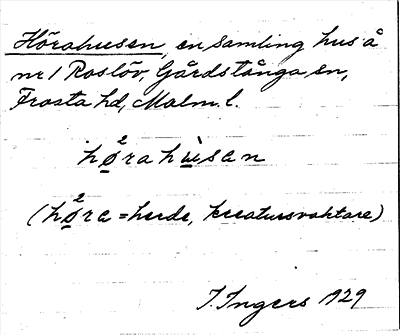 Hörahusen, en samling hus å
nr 1 Roslöv, Gårdstånga sn,
Frosta hd, Malm. l.
hø̠²rahu̠̇san
(hø̠²ra = herde, kreatursvaktare)
I. Ingers 1929